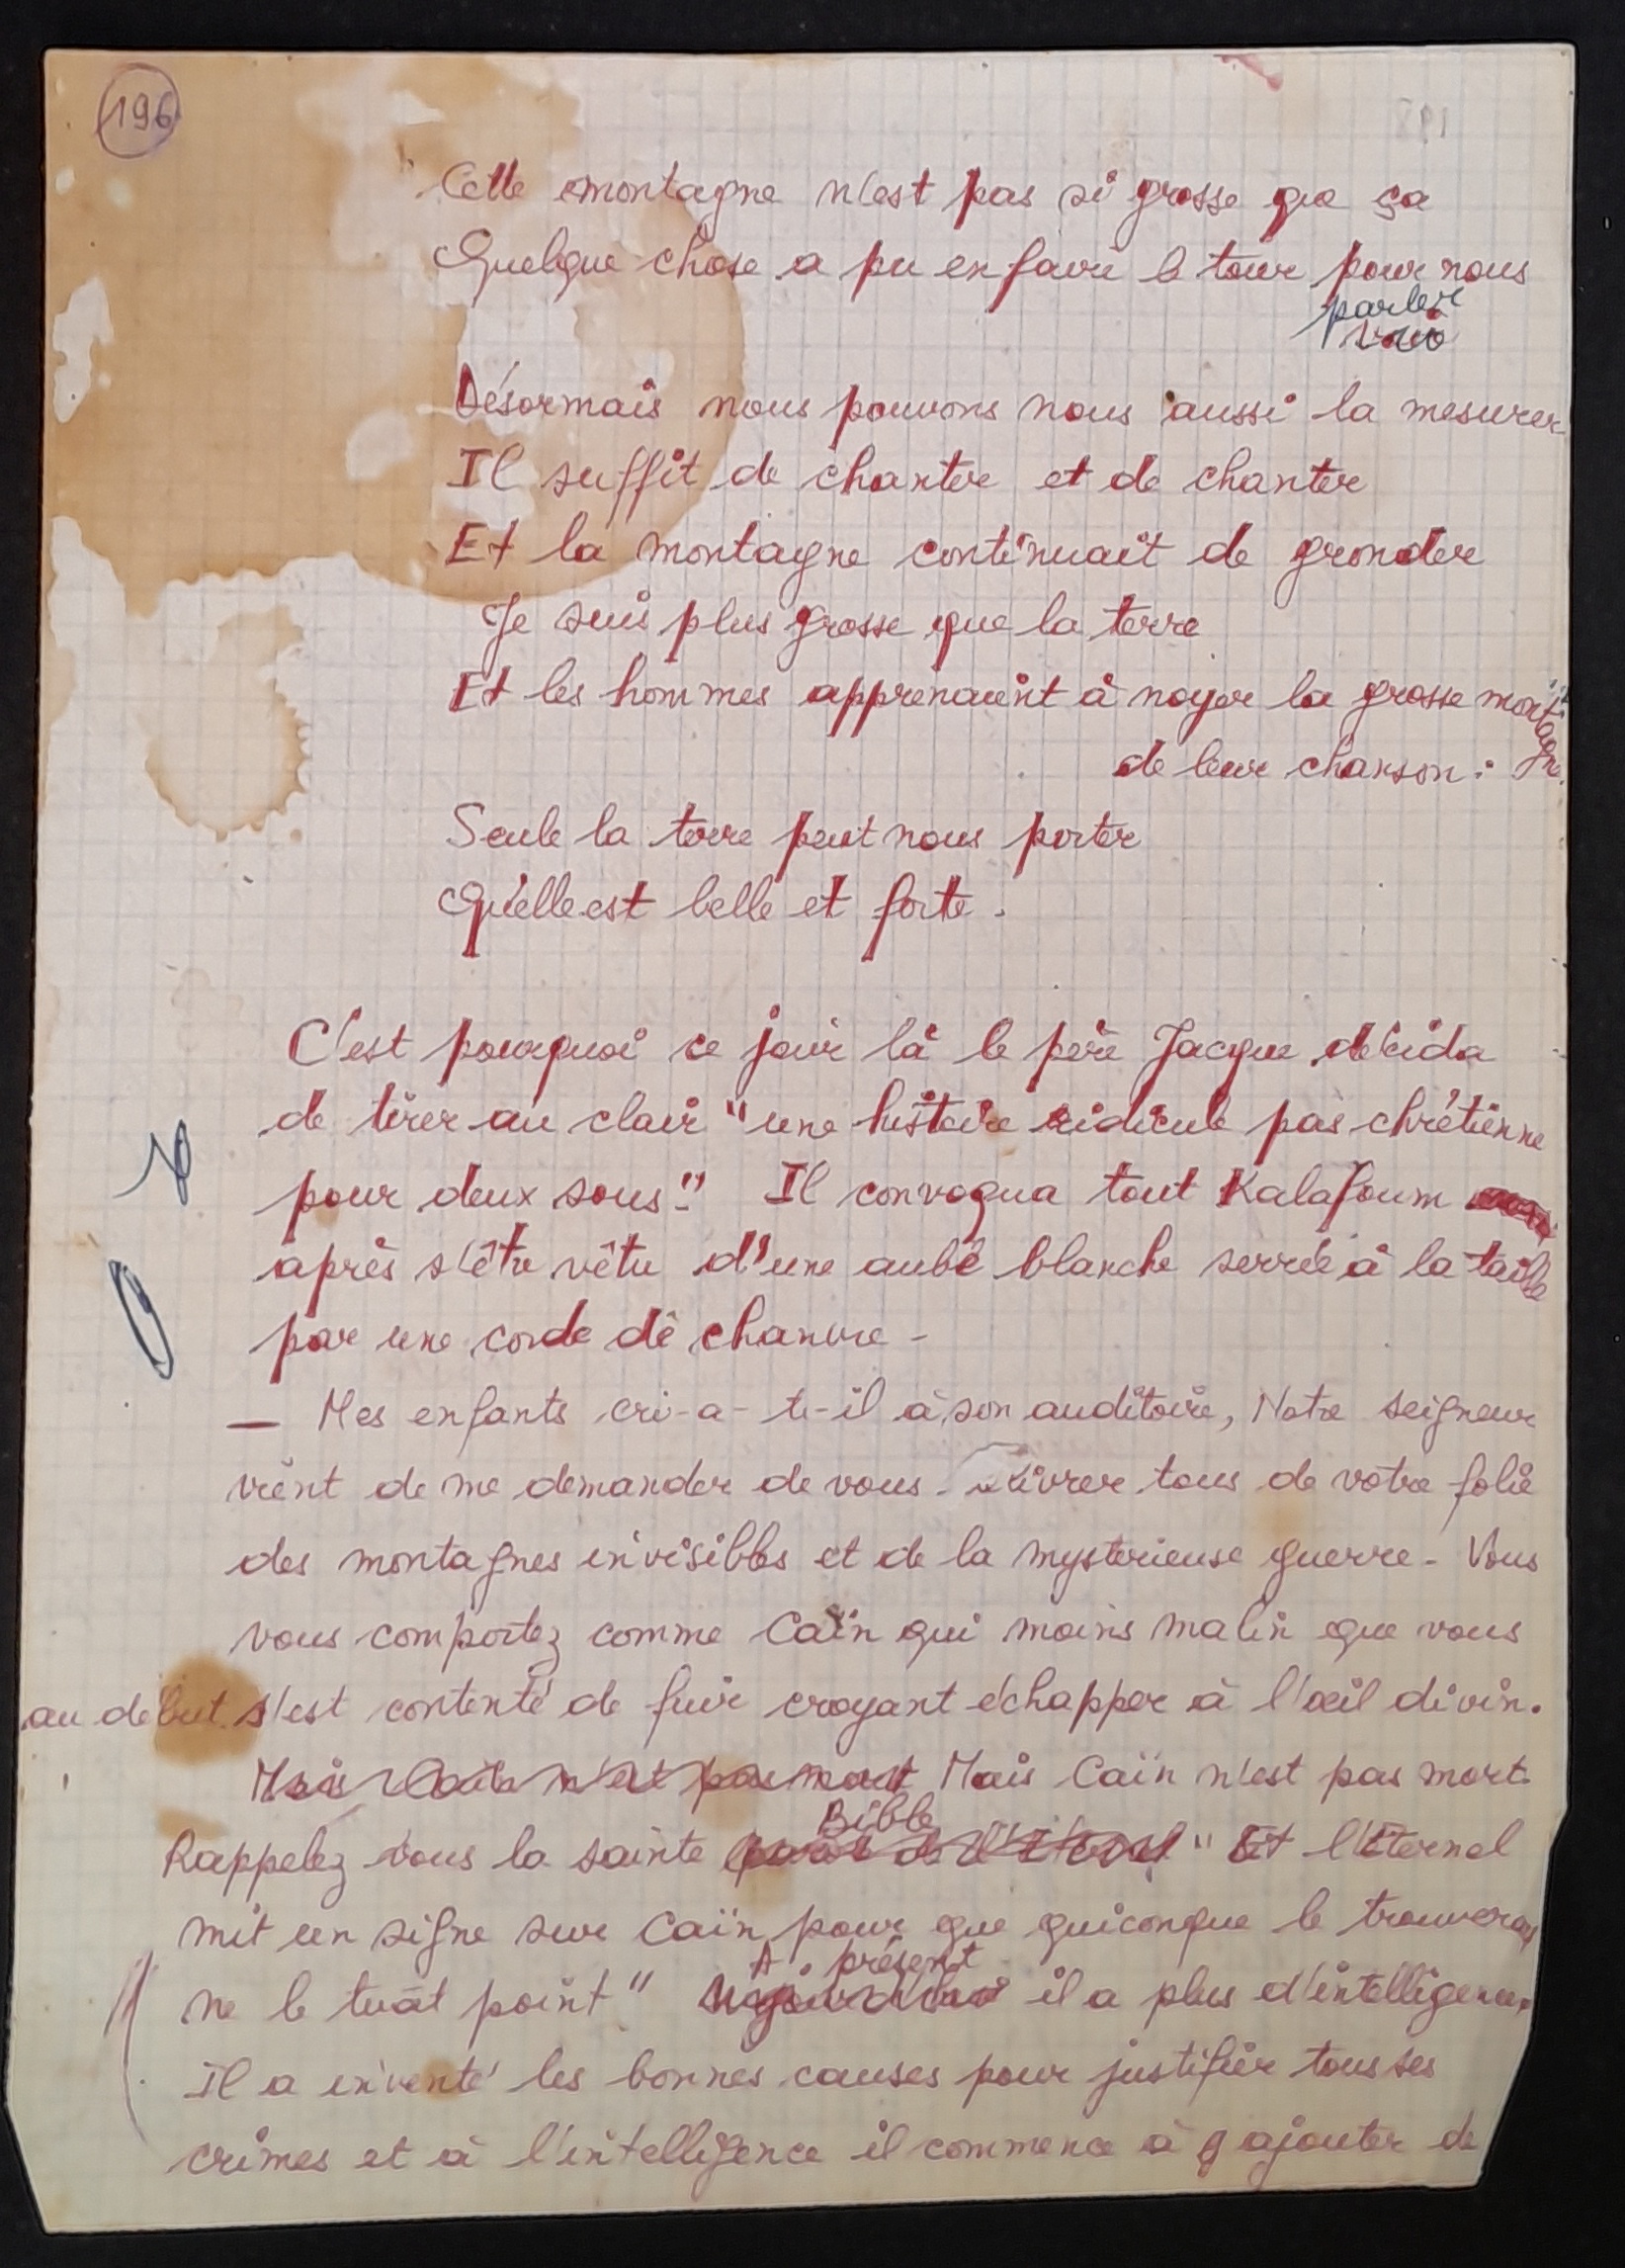 196
Cette montagne n'est pas si grosse que ça
Quelque chose a pu en faire le tour pour nous
parler
Désormais nous pouvons nous aussi la mesurer
Il suffit de chanter et de chanter
Et la montagne continuait de gronder
Je suis plus grosse que la terre
Et les hommes apprenaient à noyer la grosse montagne
de leur chanson :
Seule la terre peut nous porter
Qu'elle est belle et forte.
C'est pourquoi ce jour là le père Jacque décida
de tirer au clair "une histoire ridicule pas chrétienne
pour deux sous." Il convoqua tout Kalafoum
après s'être vêtu d'une aube blanche serrée à la taille
par une corde de chanvre -
— Mes enfants cri-a-t-il à son auditoire, Notre seigneur
vient de me demander de vous tous de votre folie
des montagnes invisibles et de la mysterieuse guerre - Vous
vous comportez comme Caïn qui moins malin que vous
au debut s'est contenté de fuir croyant échapper à l'œil divin.
Mais Caïn n'est pas mort Mais Caïn n'est pas mort.
Bible
Rappelez vous la sainte parole de l'Eternel "Et l'Eternel
mit un signe sur Caïn pour que quiconque le trouverait
A présent
ne le tuât point" Aujourd'hui il a plus d'intelligence.
Il a inventé les bonnes causes pour justifier tous ses
crimes et à l'intelligence il commence à y ajouter de